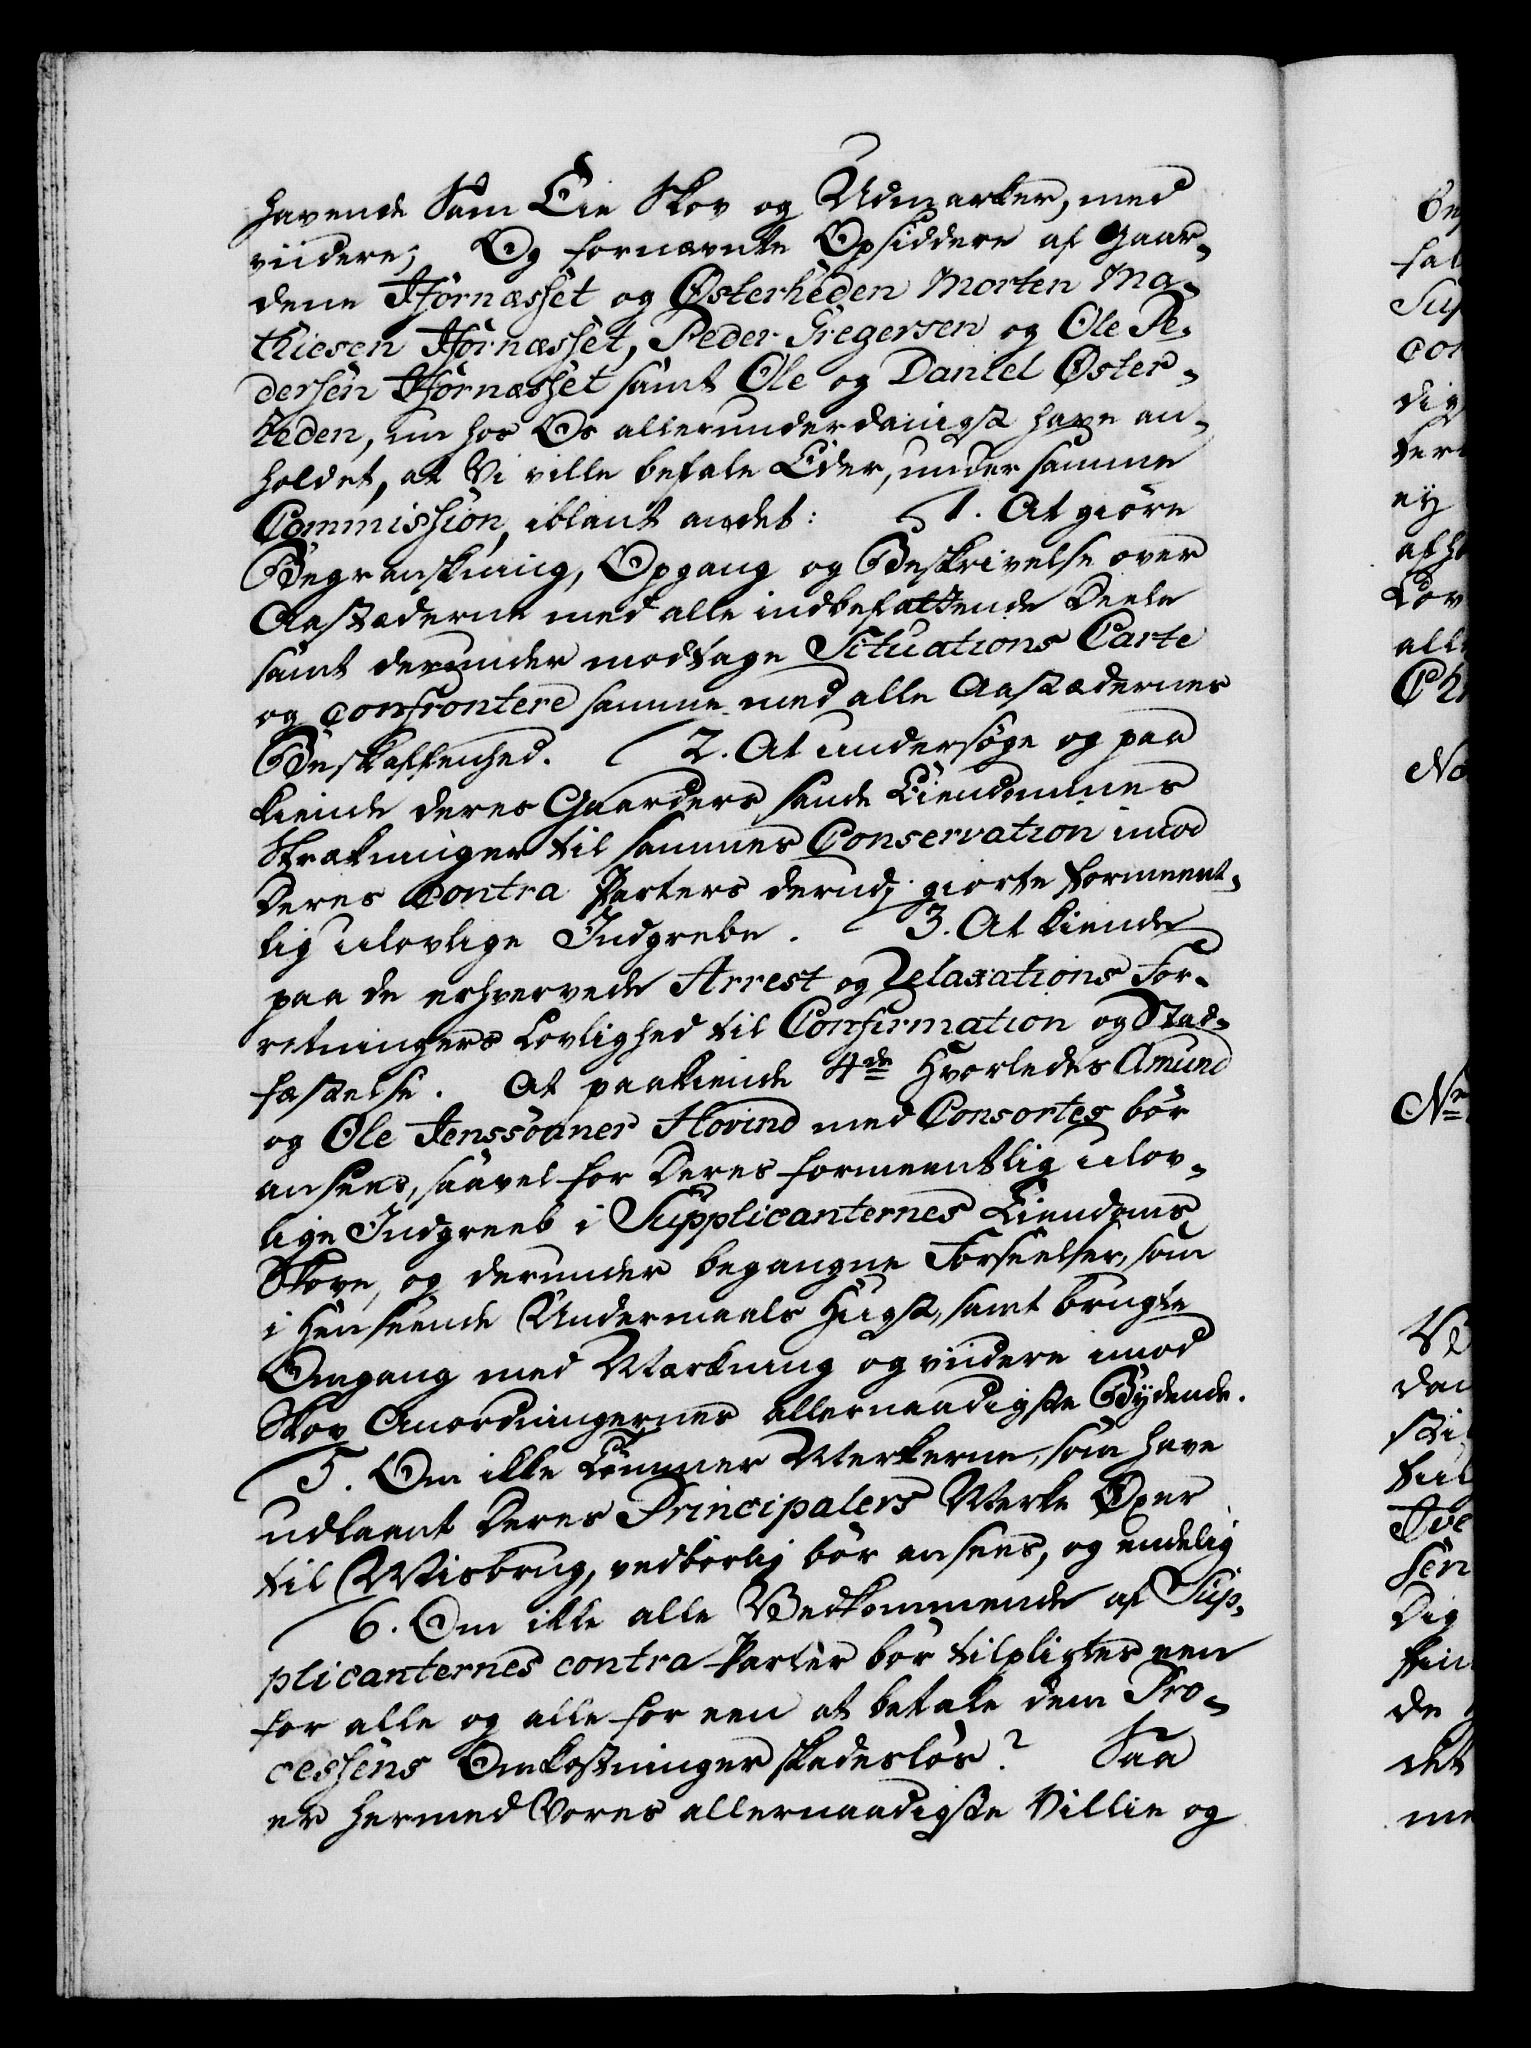 havende Sam Eie Skov og Udmarker, med
viidere; Og fornævnte Opsiddere af Gaar-
dene Hörnæsset og Østerheden Morten Ma-
thiesen Hörnæsset, Peder Gregersen og Ole Pe-
dersen Hörnæsset samt Ole og Daniel Øster-
heden, nu hos Os allerunderdanigst have an-
holdet, at Vi ville befale Eder, under samme
Commission, iblant andet: 1. At giöre
Begranskning, Opgang og Beskrivelse over
Aastæderne med alle indbefattende Deele
samt derunder modtage Situations Carte
og confrontere samme med alle Aastædernes
Beskaffenhed. 2. At undersöge og paa
kiende deres Gaarders sande Eiendommes
Strækninger til sammes Conservation imod
Deres Contra Parters derudj giorte formeent-
lig ulovlige Indgrebe. 3. At kiende
paa de erhvervede Arrest og Relaxations For-
retningers Lovlighed til Confirmation og Stad-
fæstelse. At paakiende 4de Hvorledes Amund
og Ole Jenssönner Hovind med Consortes bör
ansees, saavel for Deres formeentlig ulov-
lige Indgreeb i Supplicanternes Eiendoms
Skove, og derunder begangne Forseelser, som
i Henseende Undermaals Hugst, samt brugte
Omgang med Mærkning og viidere imod
Skov Anordningernes allernaadigste Bydende.
5. Om ikke Tömmer Merkerne, som have
udlaant Deres Principalers Merke Öxer
til Misbrug, vedbörlig bör ansees, og endelig
6. Om ikke alle Vedkommende af Sup-
plicanternes contra Parter bör tilpligtes een
for alle og alle for een at betale dem Pro-
cessens Omkostninger skadeslös? Saa
er hermed Vores allernaadigste Villie og